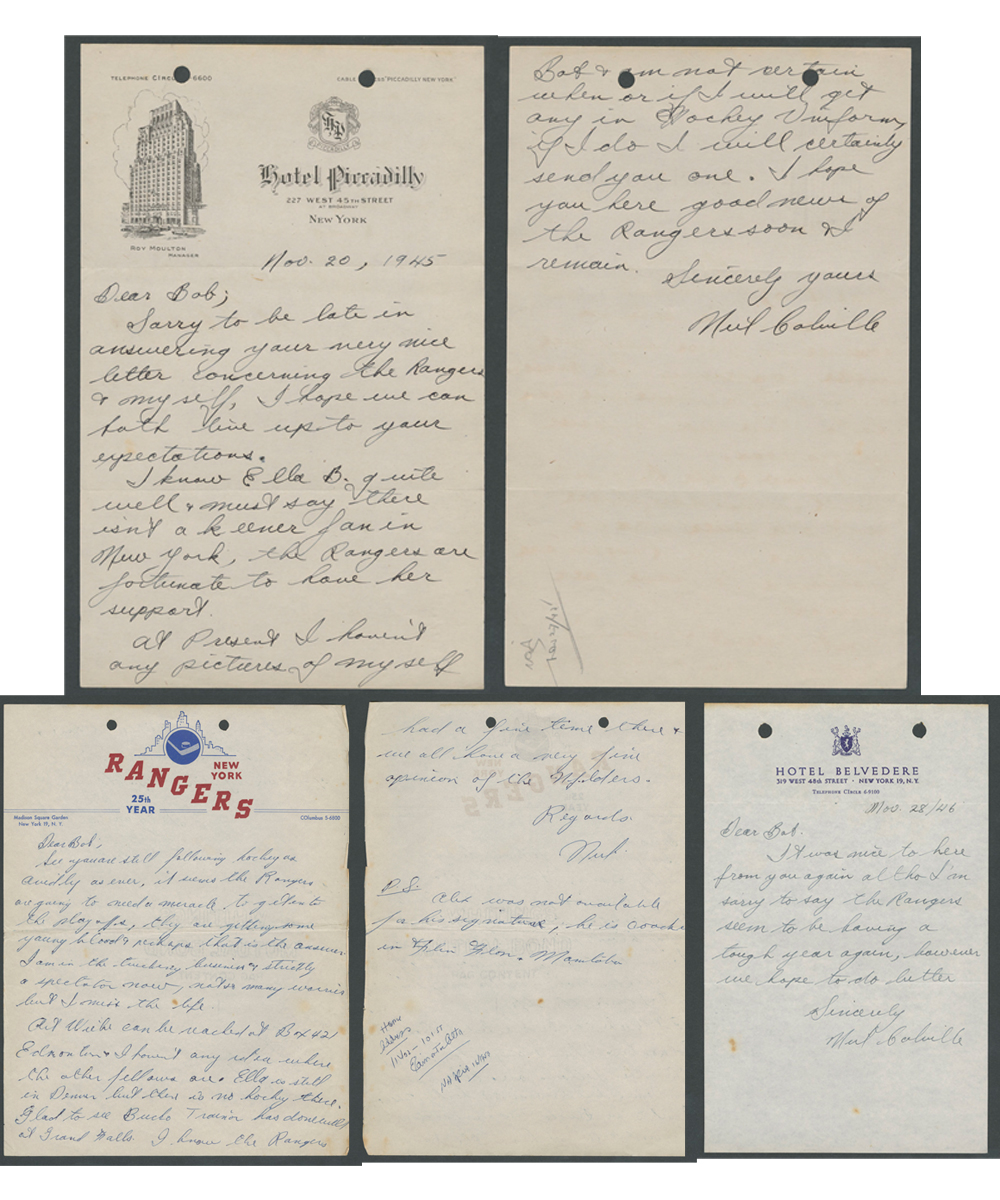 TELEPHONE CIRCLE 6-6600
CABLE "PICCADILLY NEW YORK"
HP
PICCADILLY
Hotel Piccadilly
227 WEST 45TH STREET
AT BROADWAY
NEW YORK
ROY MOULTON
MANAGER
Nov. 20, 1945
Dear Bob;
Sorry to be late in
answering your very nice
letter concerning the Rangers
& myself, I hope we can
both live up to your
expectations.
I know Ella B. quite
well & must say there
isn't a keener fan in
New York, the Rangers are
fortunate to have her
support.
At Present I haven't
any pictures of myself
Bob & am not certain
when or if I will get
any in Hockey Uniform,
if I do I will certainly
send you one. I hope
you here good news of
the Rangers soon & I
remain.
Sincerely yours
Neil Colville
RANGERS
NEW
YORK
25th
YEAR
Madison Square Garden
New York 19, N. Y.
COlumbus 5-6800
Dear Bob;
See you are still following hockey as
avidly as ever, it seems the Rangers
are going to need a miracle to get into
the playoffs, they are getting some
young blood & perhaps that is the answer.
I am in the trucking business & strictly
a spectator now, not so many worries
but I miss the life.
Art Wiebe can be reached at Box 42
Edmonton & I haven't any idea where
the other fellows are. Ella is still
in Denver but there is no hockey there.
Glad to see Bucko Trainor has done well
at Grand Falls. I know the Rangers
had a fine time there &
we all have a very fine
opinion of the Nflders.
Regards.
Neil.
P.S.
Alex was not available
for his signature, he is coach
in Flin Flon. Manitoba
HOTEL BELVEDERE
319 WEST 48th STREET · NEW YORK 19, N.Y.
TELEPHONE CIRCLE 6-9100
Nov. 28/46
Dear Bob.
It was nice to here
from you again altho I'm
sorry to say the Rangers
seem to be having a
tough year again, however
we hope to do better
Sincerely
Neil Colville